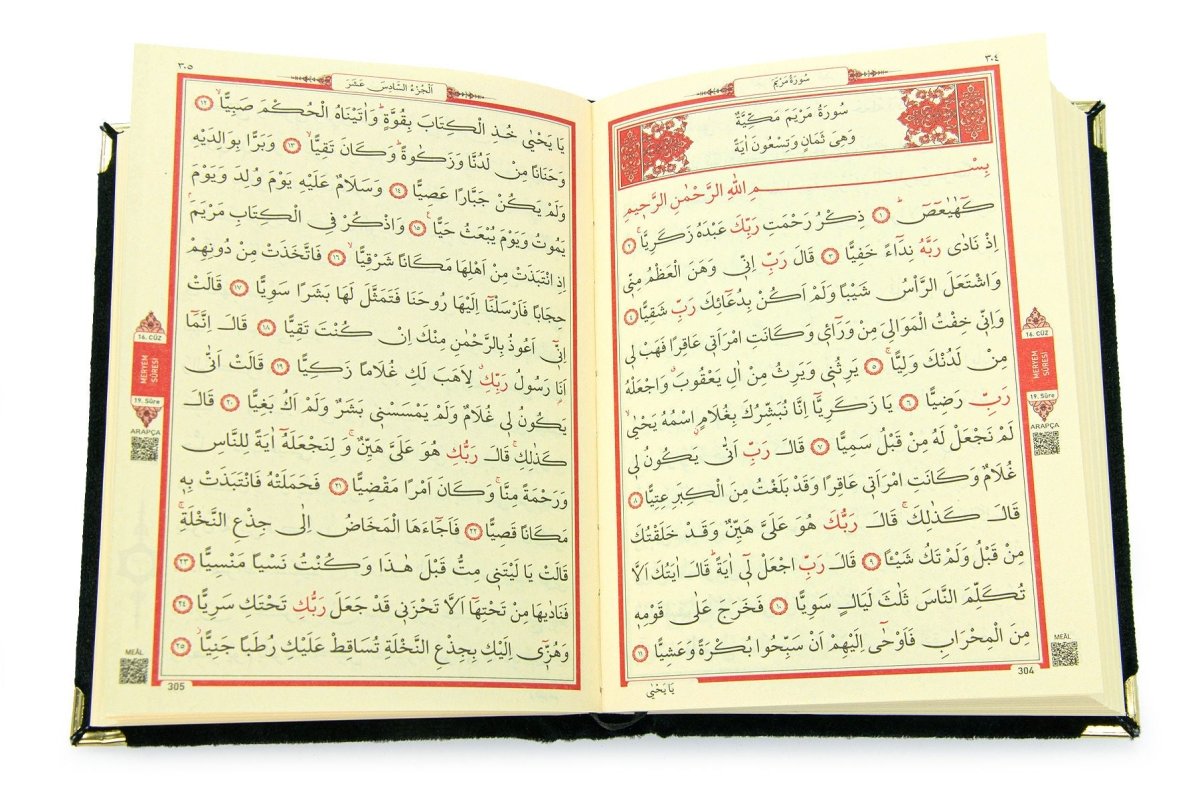 ٣٠٤
سُورَةُ مَرْيَمَ
سُورَةُ مَرْيَمَ مَكِّيَّةٌ
وَهِىَ ثَمَانٍ وَتِسْعُونَ اٰيَةً
بِسْــــــــــمِ اللّٰهِ الرَّحْمٰنِ الرَّحٖيمِ
كٓهٰيٰعٓصٓ ۚ ١ ذِكْرُ رَحْمَتِ رَبِّكَ عَبْدَهُ زَكَرِيَّا ۚ ٢
اِذْ نَادٰى رَبَّهُ نِدَٓاءً خَفِيًّا ٣ قَالَ رَبِّ اِنّٖى وَهَنَ الْعَظْمُ مِنّٖى
وَاشْتَعَلَ الرَّأْسُ شَيْبًا وَلَمْ اَكُنْ بِدُعَٓائِكَ رَبِّ شَقِيًّا ٤
وَاِنّٖى خِفْتُ الْمَوَالِىَ مِنْ وَرَٓائٖى وَكَانَتِ امْرَاَتٖى عَاقِرًا فَهَبْ لٖى
مِنْ لَدُنْكَ وَلِيًّا ۙ ٥ يَرِثُنٖى وَيَرِثُ مِنْ اٰلِ يَعْقُوبَ ۗ وَاجْعَلْهُ
رَبِّ رَضِيًّا ٦ يَا زَكَرِيَّٓا اِنَّا نُبَشِّرُكَ بِغُلَامٍ اسْمُهُ يَحْيٰى ۙ
لَمْ نَجْعَلْ لَهُ مِنْ قَبْلُ سَمِيًّا ٧ قَالَ رَبِّ اَنّٰى يَكُونُ لٖى
غُلَامٌ وَكَانَتِ امْرَاَتٖى عَاقِرًا وَقَدْ بَلَغْتُ مِنَ الْكِبَرِ عِتِيًّا ٨
قَالَ كَذٰلِكَ ۚ قَالَ رَبُّكَ هُوَ عَلَىَّ هَيِّنٌ وَقَدْ خَلَقْتُكَ
مِنْ قَبْلُ وَلَمْ تَكُ شَيْـًٔا ٩ قَالَ رَبِّ اجْعَلْ لٖٓى اٰيَةً ۜ قَالَ اٰيَتُكَ اَلَّا
تُكَلِّمَ النَّاسَ ثَلٰثَ لَيَالٍ سَوِيًّا ١٠ فَخَرَجَ عَلٰى قَوْمِهٖ
مِنَ الْمِحْرَابِ فَاَوْحٰٓى اِلَيْهِمْ اَنْ سَبِّحُوا بُكْرَةً وَعَشِيًّا ١١
304
يَا يَحْيٰى
16. CÜZ
MERYEM
SÛRESİ
19. Sûre
ARAPÇA
MEÂL
٣٠٥
اَلْجُزْءُ السَّادِسَ عَشَرَ
يَا يَحْيٰى خُذِ الْكِتَابَ بِقُوَّةٍ ۜ وَاٰتَيْنَاهُ الْحُكْمَ صَبِيًّا ۙ ١٢
وَحَنَانًا مِنْ لَدُنَّا وَزَكٰوةً ۜ وَكَانَ تَقِيًّا ۙ ١٣ وَبَرًّا بِوَالِدَيْهِ
وَلَمْ يَكُنْ جَبَّارًا عَصِيًّا ١٤ وَسَلَامٌ عَلَيْهِ يَوْمَ وُلِدَ وَيَوْمَ
يَمُوتُ وَيَوْمَ يُبْعَثُ حَيًّا ۟ ١٥ وَاذْكُرْ فِى الْكِتَابِ مَرْيَمَ ۢ
اِذِ انْتَبَذَتْ مِنْ اَهْلِهَا مَكَانًا شَرْقِيًّا ۙ ١٦ فَاتَّخَذَتْ مِنْ دُونِهِمْ
حِجَابًا فَاَرْسَلْنَٓا اِلَيْهَا رُوحَنَا فَتَمَثَّلَ لَهَا بَشَرًا سَوِيًّا ١٧ قَالَتْ
اِنّٖٓى اَعُوذُ بِالرَّحْمٰنِ مِنْكَ اِنْ كُنْتَ تَقِيًّا ١٨ قَالَ اِنَّمَٓا
اَنَا رَسُولُ رَبِّكِ ۗ لِاَهَبَ لَكِ غُلَامًا زَكِيًّا ١٩ قَالَتْ اَنّٰى
يَكُونُ لٖى غُلَامٌ وَلَمْ يَمْسَسْنٖى بَشَرٌ وَلَمْ اَكُ بَغِيًّا ٢٠ قَالَ
كَذٰلِكِ ۚ قَالَ رَبُّكِ هُوَ عَلَىَّ هَيِّنٌ ۚ وَلِنَجْعَلَهُٓ اٰيَةً لِلنَّاسِ
وَرَحْمَةً مِنَّا ۚ وَكَانَ اَمْرًا مَقْضِيًّا ٢١ فَحَمَلَتْهُ فَانْتَبَذَتْ بِهٖ
مَكَانًا قَصِيًّا ٢٢ فَاَجَٓاءَهَا الْمَخَاضُ اِلٰى جِذْعِ النَّخْلَةِ ۚ
قَالَتْ يَا لَيْتَنٖى مِتُّ قَبْلَ هٰذَا وَكُنْتُ نَسْيًا مَنْسِيًّا ٢٣
فَنَادٰيهَا مِنْ تَحْتِهَٓا اَلَّا تَحْزَنٖى قَدْ جَعَلَ رَبُّكِ تَحْتَكِ سَرِيًّا ٢٤
وَهُزّٖٓى اِلَيْكِ بِجِذْعِ النَّخْلَةِ تُسَاقِطْ عَلَيْكِ رُطَبًا جَنِيًّا ۘ ٢٥
305
16. CÜZ
MERYEM
SÛRESİ
19. Sûre
ARAPÇA
MEÂL